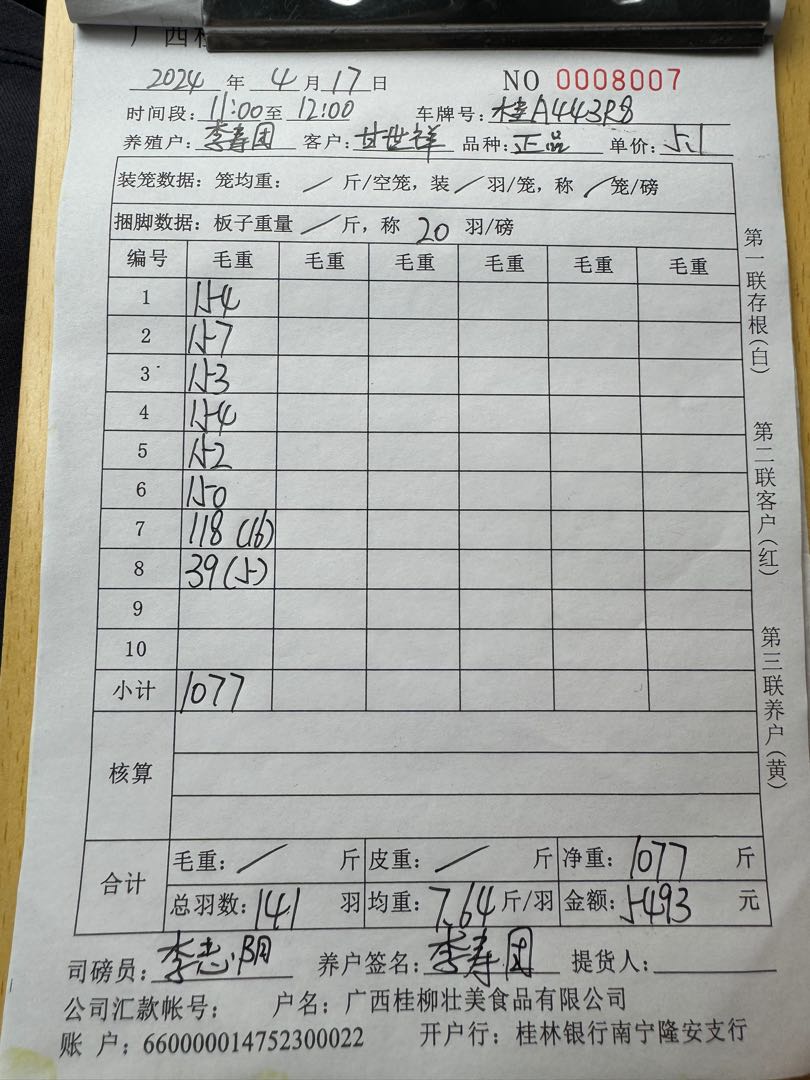 广西桂
2024 年 4 月 17 日 NO 0008007
时间段: 11:00 至 12:00 车牌号: 桂A443R8
养殖户: 李寿团 客户: 甘世祥 品种: 正品 单价: 5.1
装笼数据: 笼均重: / 斤/空笼, 装 / 羽/笼, 称 / 笼/磅
捆脚数据: 板子重量 / 斤, 称 20 羽/磅
编号 毛重 毛重 毛重 毛重 毛重 毛重
1 154
2 157
3 153
4 154
5 152
6 150
7 118 (16)
8 39 (5)
9
10
小计 1077
核算
合计
毛重: / 斤 皮重: / 斤 净重: 1077 斤
总羽数: 141 羽 均重: 7.64 斤/羽 金额: 5493 元
司磅员: 李志阴 养户签名: 李寿团 提货人:
公司汇款帐号: 户名: 广西桂柳壮美食品有限公司
账 户: 660000014752300022 开户行: 桂林银行南宁隆安支行
第一联存根(白)
第二联客户(红)
第三联养户(黄)